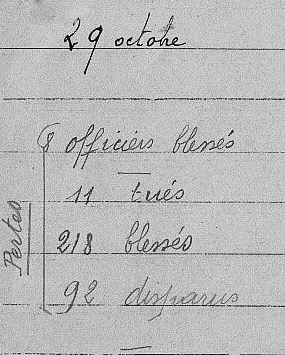 29 octobre
8 officiers blessés
11 tués
218 blessés
92 disparus
Pertes